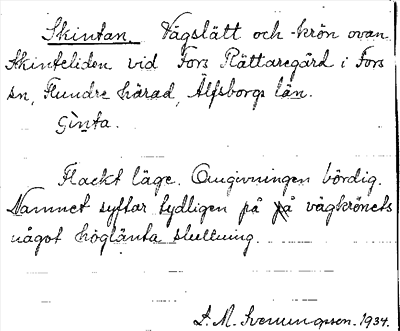 Skintan. Vägslätt och -krön ovan
Skinteliden vid Fors Rättaregård i Fors
sn, Flundre härad, Älfsborgs län.
Ginta.
Flackt läge. Omgivningen bördig.
Namnet syftar tydligen på vägkrönets
något höglänta sluttning.
L. M. Svenungsson. 1934.